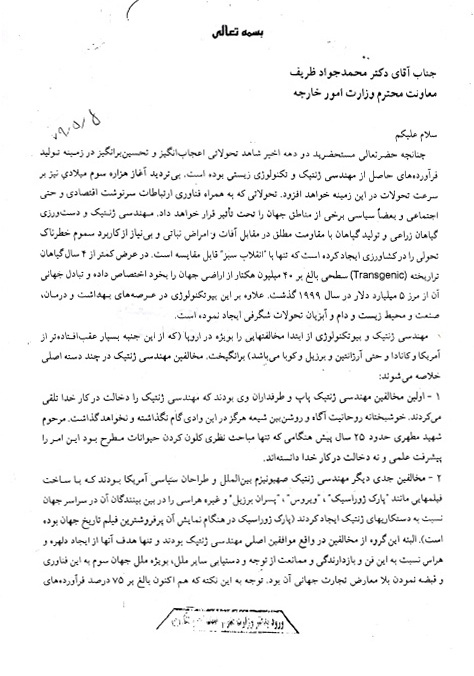 بسمه تعالی
جناب آقای دکتر محمدجواد ظریف
معاونت محترم وزارت امور خارجه
سلام علیکم
چنانچه حضرتعالی مستحضرید دو دهه اخیر شاهد تحولاتی اعجاب‌انگیز و تحسین‌برانگیز در زمینه تولید
فرآورده‌های حاصل از مهندسی ژنتیک و تکنولوژی زیستی بوده است. بی‌تردید آغاز هزاره سوم میلادی نیز بر
سرعت تحولات در این زمینه خواهد افزود. تحولاتی که به همراه فناوری ارتباطات سرنوشت اقتصادی و حتی
اجتماعی و بعضاً سیاسی برخی از مناطق جهان را تحت تأثیر قرار خواهد داد. مهندسی ژنتیک و دست‌ورزی
گیاهان زراعی و تولید گیاهان با مقاومت مطلق در مقابل آفات و امراض نباتی و بی‌نیاز از کاربرد سموم خطرناک
تحولی را در کشاورزی ایجاد کرده است که تنها با "انقلاب سبز" قابل مقایسه است. در عرض کمتر از ۴ سال گیاهان
تراریخته (Transgenic) سطحی بالغ بر ۴۰ میلیون هکتار از اراضی جهان را بخود اختصاص داده و تبادل جهانی
آن از مرز ۵ میلیارد دلار در سال ۱۹۹۹ گذشت. علاوه بر این بیوتکنولوژی در عرصه‌های بهداشت و درمان،
صنعت و محیط زیست و دام و آبزیان تحولات شگرفی ایجاد نموده است.
مهندسی ژنتیک و بیوتکنولوژی از ابتدا مخالفتهایی را بویژه در اروپا (که از این جنبه بسیار عقب‌افتاده‌تر از
آمریکا و کانادا و حتی آرژانتین و برزیل و کوبا می‌باشد) برانگیخت. مخالفین مهندسی ژنتیک در چند دسته اصلی
خلاصه می‌شوند:
۱ - اولین مخالفین مهندسی ژنتیک پاپ و طرفداران وی بودند که مهندسی ژنتیک را دخالت در کار خدا تلقی
می‌کردند. خوشبختانه روحانیت آگاه و روشن‌بین شیعه هرگز در این وادی گام نگذاشته و نخواهد گذاشت. مرحوم
شهید مطهری حدود ۲۵ سال پیش هنگامی که تنها مباحث نظری کلون کردن حیوانات مطرح بود این امر را
پیشرفت علمی و نه دخالت در کار خدا دانسته‌اند.
۲ - مخالفین جدی دیگر مهندسی ژنتیک صهیونیزم بین‌الملل و طراحان سیاسی آمریکا بودند که با ساخت
فیلمهایی مانند "پارک ژوراسیک"، "ویروس"، "پسران برزیل" و غیره هراسی را در بین بینندگان آن در سراسر جهان
نسبت به دستکاریهای ژنتیک ایجاد کردند (پارک ژوراسیک در هنگام نمایش آن پرفروشترین فیلم تاریخ جهان بوده
است). البته این گروه از مخالفین در واقع موافقین اصلی مهندسی ژنتیک بودند و تنها هدف آنها از ایجاد دلهره و
هراس نسبت به این فن و بازدارندگی و ممانعت از توجه و دستیابی سایر ملل، بویژه ملل جهان سوم به این فناوری
و قبضه نمودن بلا معارض تجارت جهانی آن بود. توجه به این نکته که هم اکنون بالغ بر ۷۵ درصد فرآورده‌های